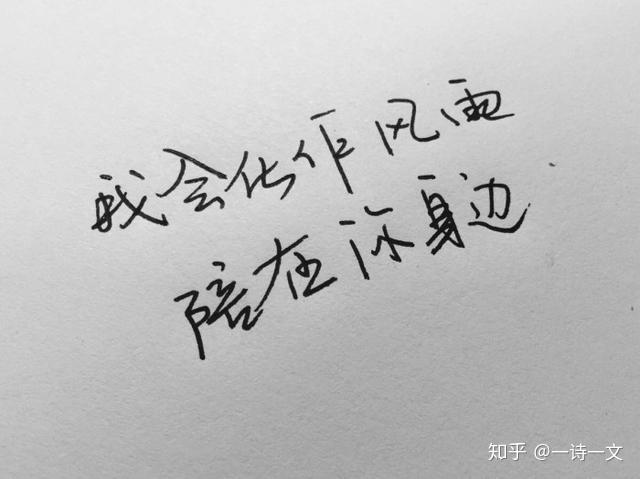 我会化作风雨
陪在你身边
知乎 @一诗一文